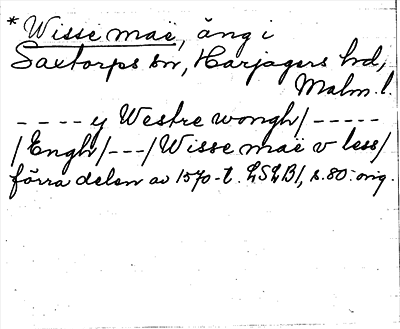 * Wisse maë, äng i
Saxtorps sn, Harjagers hd,
Malm. l.
---- y Westre wongh/-----
/Engh/---/Wisse maë v less/
förra delen av 1570-t. LSLB1, s. 80: orig.